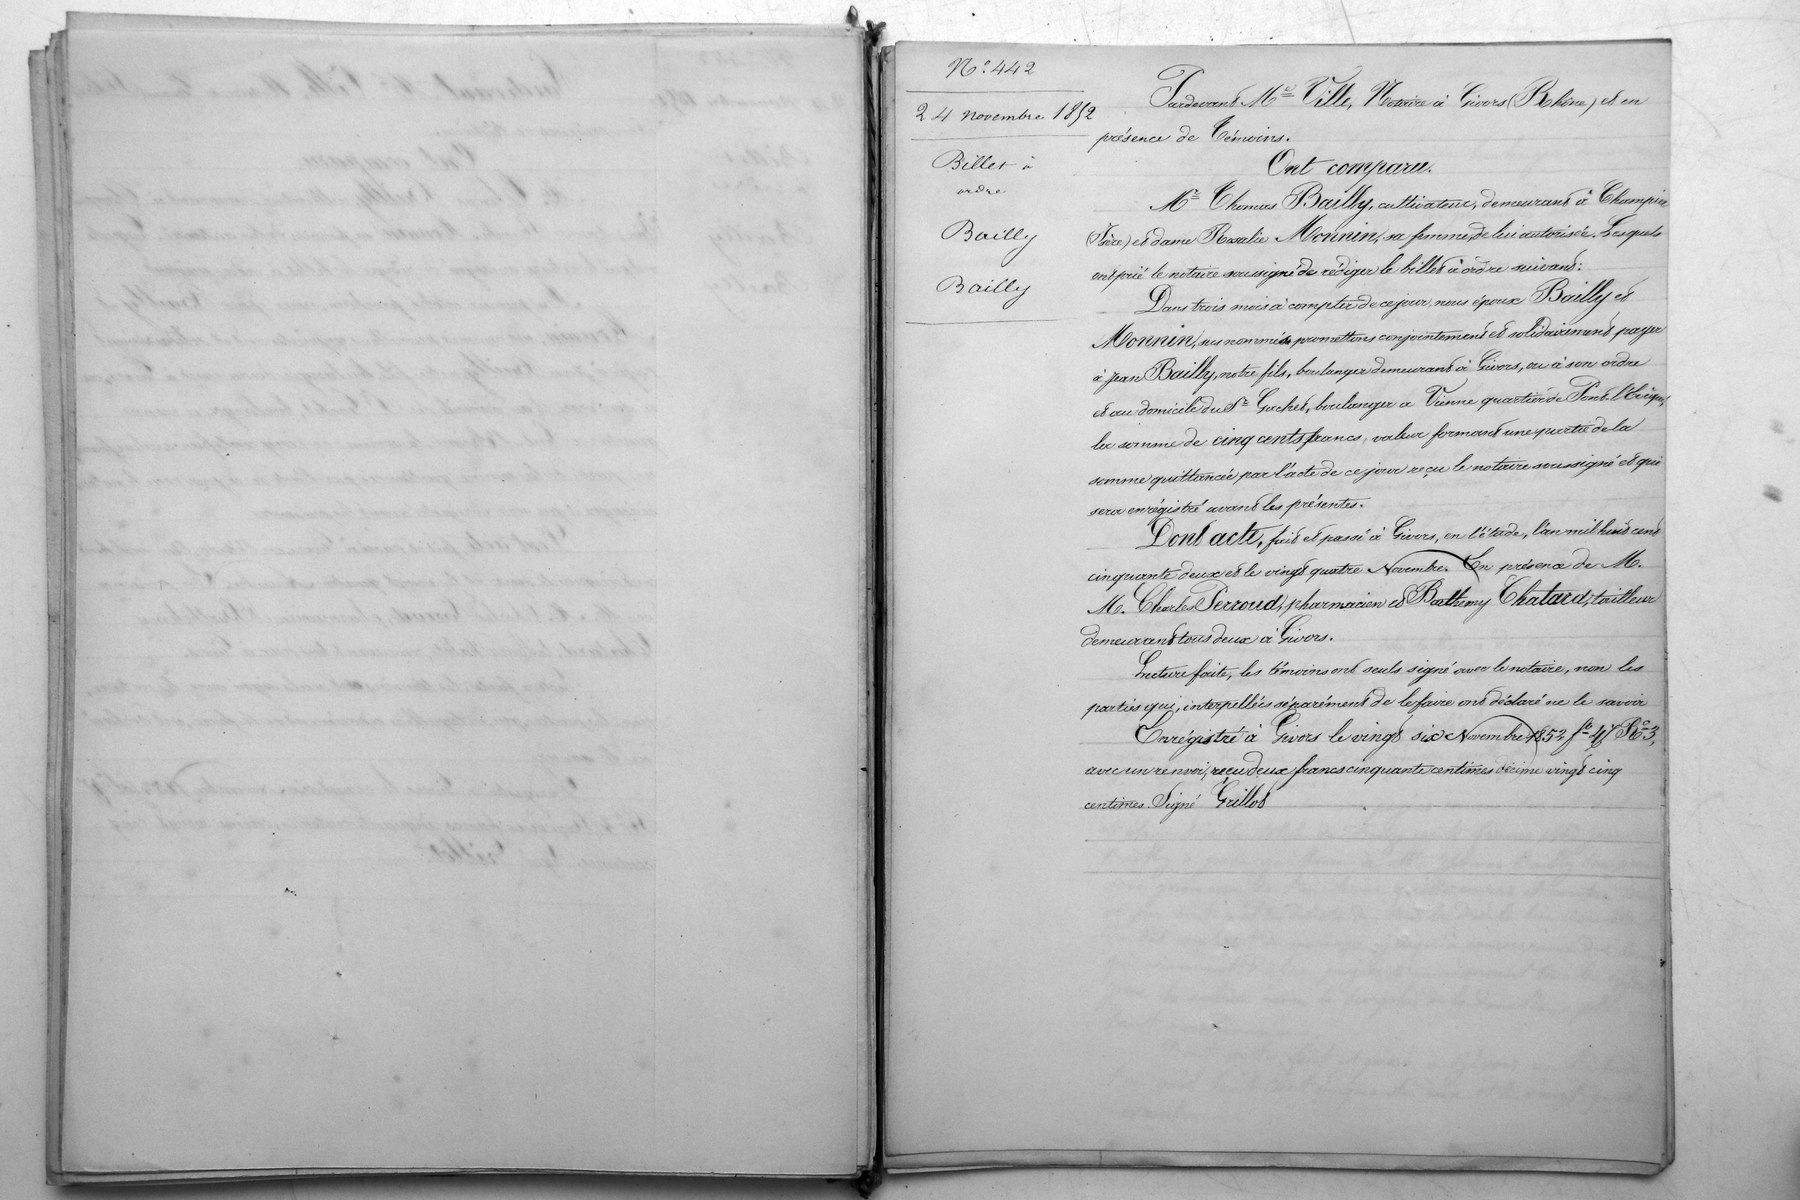 N.º 442
24 novembre 1852
Billet à
ordre
Bailly
Bailly
Pardevant Me Ville, Notaire à Givors (Rhône) et en
présence de Témoins.
Ont comparu.
Mr Thomas Bailly, cultivateur, demeurant à Champin
(Isère) et dame Rosalie Monnin, sa femme, de lui autorisée. Lesquels
ont prié le notaire soussigné de rédiger le billet à ordre suivant:
Dans trois mois à compter de ce jour, nous époux Bailly et
Monnin, sus nommés promettons conjointement et solidairement payer
à Jean Bailly, notre fils, boulanger demeurant à Givors, ou à son ordre
et au domicile du Sr Gachet, boulanger à Vienne quartier de Pont l'Evêque,
la somme de cinq cents francs, valeur formant une partie de la
somme quittancée par l'acte de ce jour reçu le notaire soussigné et qui
sera enrégistré avant les présentes.
Dont acte, fait et passé à Givors, en l'étude, l'an mil huit cent
cinquante deux et le vingt quatre Novembre. En présence de M.
M. Charles Perroud, pharmacien et Barthemy Chatard, tailleur
demeurant tous deux à Givors.
Lecture faite, les témoins ont seuls signé avec le notaire, non les
parties qui, interpellées séparément de le faire ont déclaré ne le savoir
Enrégistré à Givors le vingt six Novembre 1852 fo Ro 3,
avec un renvoi, reçu deux francs cinquante centimes décime vingt cinq
centimes. Signé Grillot